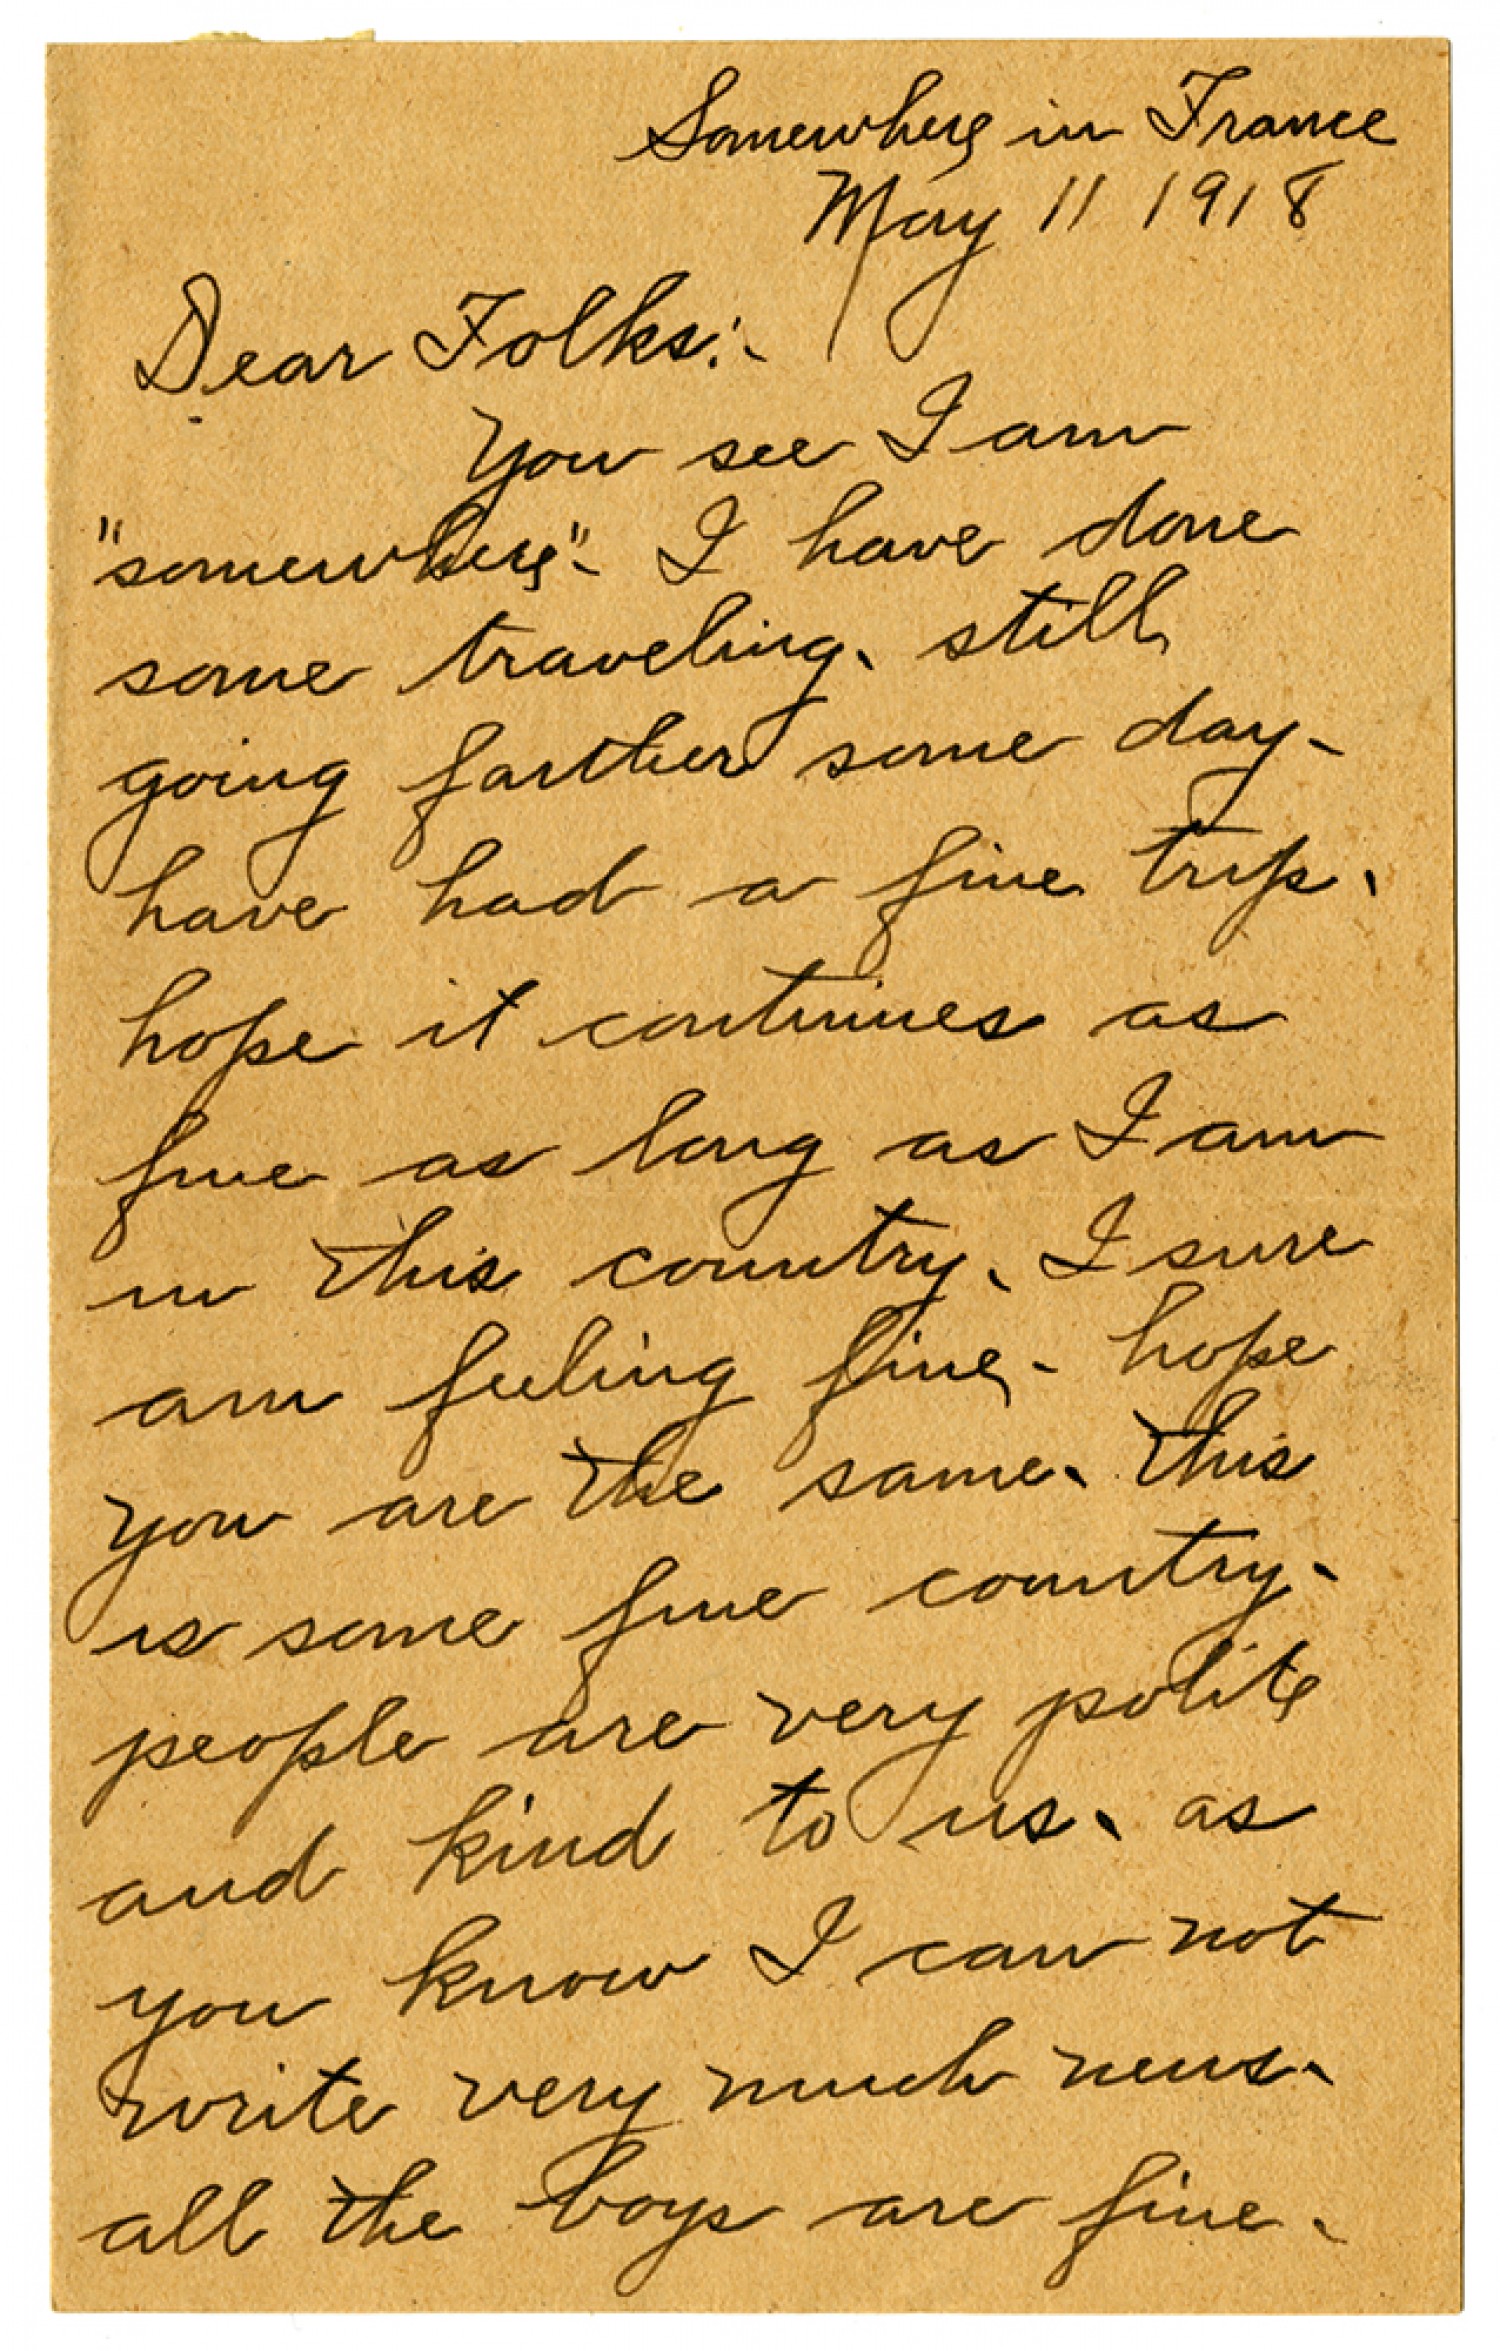 Somewhere in France
May 11 1918
Dear Folks:-
You see I am
"somewhere". I have done
some traveling. still
going farther some day.
have had a fine trip.
hope it continues as
fine as long as I am
in this country. I sure
am feeling fine. hope
you are the same. this
is some fine country.
people are very polite
and kind to us. as
you know I can not
write very much news.
all the boys are fine.